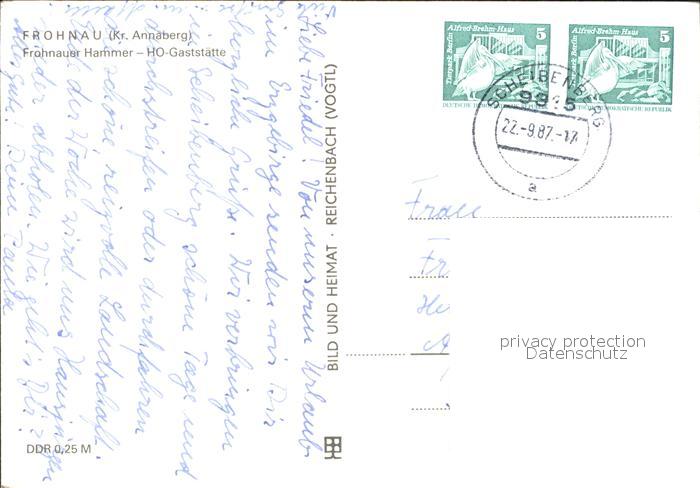 FROHNAU (Kr. Annaberg)
Frohnauer Hammer – HO-Gaststätte
Liebe Friedel! Von unserm Urlaub
im Erzgebirge senden wir Dir
herzliche Grüße. Wir verbringen
in Scheibenberg schöne Tage und
durchstreifen oder durchfahren
schöne reizvolle Landschaft.
der Woche wird uns
wieder abholen. Wie geht's Dir?
Alles Gute! Deine
DDR 0,25 M
BILD UND HEIMAT · REICHENBACH (VOGTL)
Alfred-Brehm-Haus 5
Tierpark Berlin
DEUTSCHE DEMOKRATISCHE REPUBLIK
Alfred-Brehm-Haus 5
Tierpark Berlin
DEUTSCHE DEMOKRATISCHE REPUBLIK
SCHEIBENBERG
9315
22.-9.87.-17
a
Frau
Fr
He
A
privacy protection
Datenschutz